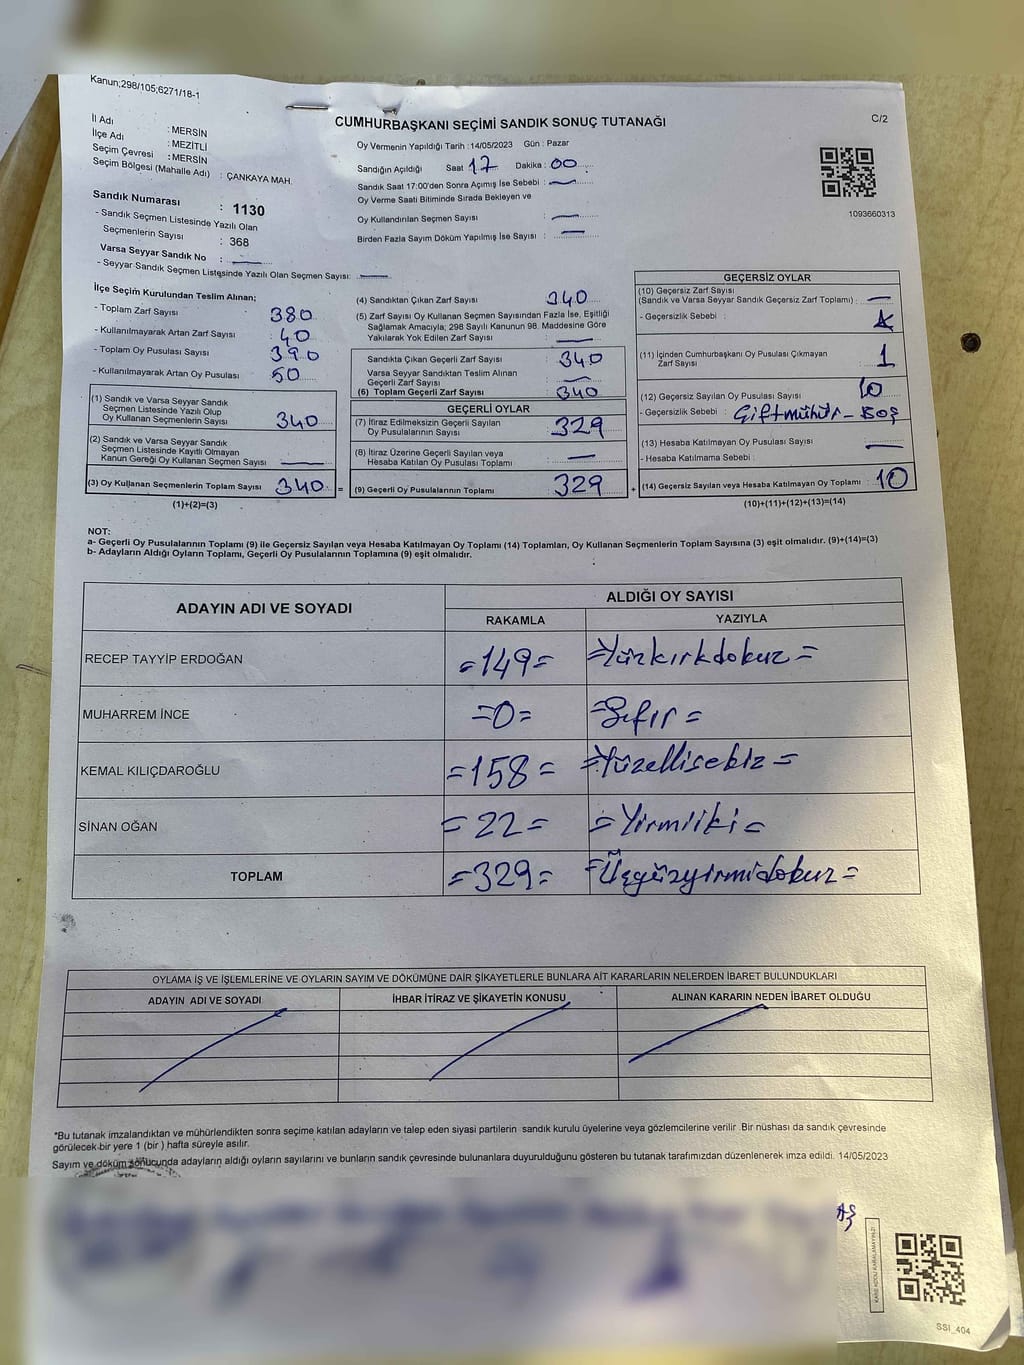 Kanun;298/105;6271/18-1
CUMHURBAŞKANI SEÇİMİ SANDIK SONUÇ TUTANAĞI
C/2
İl Adı : MERSİN
İlçe Adı : MEZİTLİ
Seçim Çevresi : MERSİN
Seçim Bölgesi (Mahalle Adı) : ÇANKAYA MAH.
Sandık Numarası : 1130
- Sandık Seçmen Listesinde Yazılı Olan
Seçmenlerin Sayısı : 368
Varsa Seyyar Sandık No :
- Seyyar Sandık Seçmen Listesinde Yazılı Olan Seçmen Sayısı:
Oy Vermenin Yapıldığı Tarih :14/05/2023 Gün : Pazar
Sandığın Açıldığı Saat 17 Dakika : 00
Sandık Saat 17:00'den Sonra Açımış İse Sebebi :
Oy Verme Saati Bitiminde Sırada Bekleyen ve
Oy Kullandırılan Seçmen Sayısı
Birden Fazla Sayım Döküm Yapılmış İse Sayısı :
1093660313
İlçe Seçim Kurulundan Teslim Alınan;
- Toplam Zarf Sayısı 380
- Kullanılmayarak Artan Zarf Sayısı 40
- Toplam Oy Pusulası Sayısı 390
- Kullanılmayarak Artan Oy Pusulası 50
(1) Sandık ve Varsa Seyyar Sandık
Seçmen Listesinde Yazılı Olup
Oy Kullanan Seçmenlerin Sayısı 340
(2) Sandık ve Varsa Seyyar Sandık
Seçmen Listesinde Kayıtlı Olmayan
Kanun Gereği Oy Kullanan Seçmen Sayısı
(3) Oy Kullanan Seçmenlerin Toplam Sayısı 340 =
(1)+(2)=(3)
(4) Sandıktan Çıkan Zarf Sayısı 340
(5) Zarf Sayısı Oy Kullanan Seçmen Sayısından Fazla İse, Eşitliği
Sağlamak Amacıyla; 298 Sayılı Kanunun 98. Maddesine Göre
Yakılarak Yok Edilen Zarf Sayısı
Sandıkta Çıkan Geçerli Zarf Sayısı 340
Varsa Seyyar Sandıktan Teslim Alınan
Geçerli Zarf Sayısı
(6) Toplam Geçerli Zarf Sayısı 340
GEÇERLİ OYLAR
(7) İtiraz Edilmeksizin Geçerli Sayılan
Oy Pusulalarının Sayısı 329
(8) İtiraz Üzerine Geçerli Sayılan veya
Hesaba Katılan Oy Pusulası Toplamı
(9) Geçerli Oy Pusulalarının Toplamı 329 +
GEÇERSİZ OYLAR
(10) Geçersiz Zarf Sayısı
(Sandık ve Varsa Seyyar Sandık Geçersiz Zarf Toplamı) :
- Geçersizlik Sebebi :
(11) İçinden Cumhurbaşkanı Oy Pusulası Çıkmayan
Zarf Sayısı 1
(12) Geçersiz Sayılan Oy Pusulası Sayısı 10
- Geçersizlik Sebebi : Çiftmühür - Boş
(13) Hesaba Katılmayan Oy Pusulası Sayısı
- Hesaba Katılmama Sebebi :
(14) Geçersiz Sayılan veya Hesaba Katılmayan Oy Toplamı : 10
(10)+(11)+(12)+(13)=(14)
NOT:
a- Geçerli Oy Pusulalarının Toplamı (9) ile Geçersiz Sayılan veya Hesaba Katılmayan Oy Toplamı (14) Toplamları, Oy Kullanan Seçmenlerin Toplam Sayısına (3) eşit olmalıdır. (9)+(14)=(3)
b- Adayların Aldığı Oyların Toplamı, Geçerli Oy Pusulalarının Toplamına (9) eşit olmalıdır.
ADAYIN ADI VE SOYADI ALDIĞI OY SAYISI
RAKAMLA YAZIYLA
RECEP TAYYİP ERDOĞAN =149= =Yüzkırkdokuz=
MUHARREM İNCE =0= =Sıfır=
KEMAL KILIÇDAROĞLU =158= =Yüzellisekiz=
SİNAN OĞAN =22= =Yirmiiki=
TOPLAM =329= =Üçyüzyirmidokuz=
OYLAMA İŞ VE İŞLEMLERİNE VE OYLARIN SAYIM VE DÖKÜMÜNE DAİR ŞİKAYETLERLE BUNLARA AİT KARARLARIN NELERDEN İBARET BULUNDUKLARI
ADAYIN ADI VE SOYADI İHBAR İTİRAZ VE ŞİKAYETİN KONUSU ALINAN KARARIN NEDEN İBARET OLDUĞU
*Bu tutanak imzalandıktan ve mühürlendikten sonra seçime katılan adayların ve talep eden siyasi partilerin sandık kurulu üyelerine veya gözlemcilerine verilir. Bir nüshası da sandık çevresinde
görülecek bir yere 1 (bir ) hafta süreyle asılır.
Sayım ve döküm sonucunda adayların aldığı oyların sayılarını ve bunların sandık çevresinde bulunanlara duyurulduğunu gösteren bu tutanak tarafımızdan düzenlenerek imza edildi. 14/05/2023
KARE KODU KARALAMAYINIZ!
SSİ_404